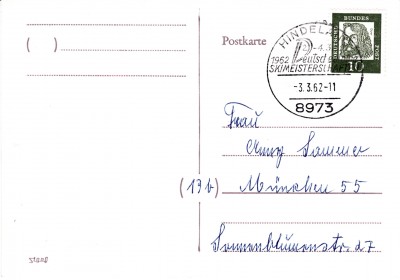 ( )
Postkarte
HINDELA
2.-4.3.
1962 Deutsche
SKIMEISTERSCHAFT
-3.3.62-11
8973
BUNDES
10
Frau
Anny Sommer
(13b) München 55
Sonnenblumenstr. 27